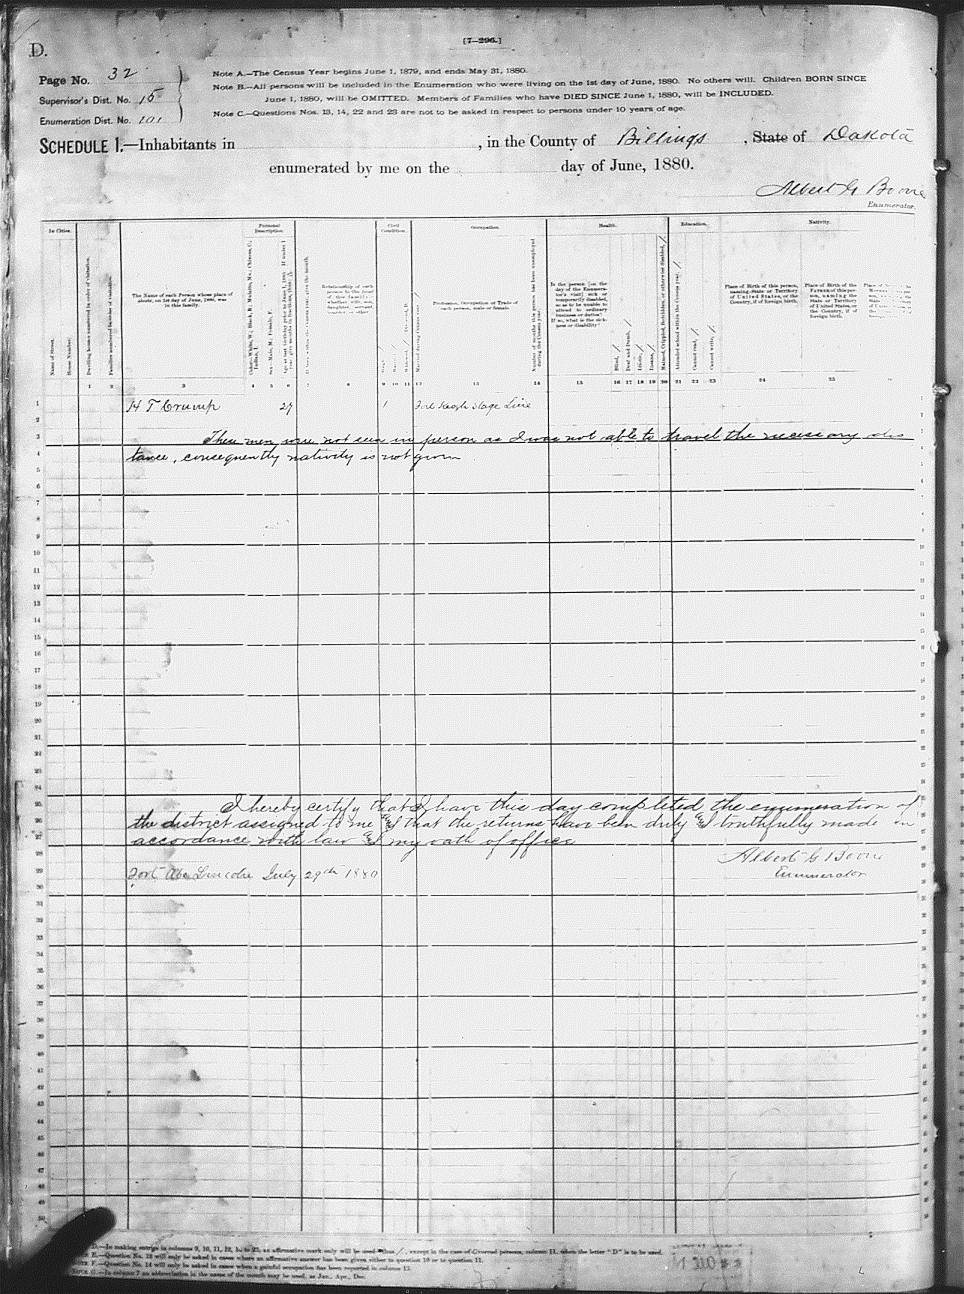 [7-296.]
D.
Page No. 32
Supervisor's Dist. No. 15
Enumeration Dist. No. 101
Note A.—The Census Year begins June 1, 1879, and ends May 31, 1880.
Note B.—All persons will be included in the Enumeration who were living on the 1st day of June, 1880. No others will. Children BORN SINCE
June 1, 1880, will be OMITTED. Members of Families who have DIED SINCE June 1, 1880, will be INCLUDED.
Note C.—Questions Nos. 13, 14, 22 and 23 are not to be asked in respect to persons under 10 years of age.
SCHEDULE 1.—Inhabitants in , in the County of Billings , State of Dakota
enumerated by me on the day of June, 1880.
Albert G Boone
Enumerator.
In Cities.
Personal Description.
Civil Condition.
Occupation.
Health.
Education.
Nativity.
Name of Street.
House Number.
Dwelling houses numbered in order of visitation.
Families numbered in order of visitation.
The Name of each Person whose place of abode, on 1st day of June, 1880, was in this family.
Profession, Occupation or Trade of each person, male or female.
Number of months this person has been unemployed during the Census year.
Blind, /
Deaf and Dumb, /
Idiotic, /
Insane, /
Maimed, Crippled, Bedridden, or otherwise disabled, /
Attended school within the Census year, /
Cannot read, /
Cannot write, /
Place of Birth of this person, naming State or Territory of United States, or the Country, if of foreign birth.
Place of Birth of the Father of this person, naming the State or Territory of United States, or the Country, if of foreign birth.
1 2 3 4 5 6 7 8 9 10 11 12 13 14 15 16 17 18 19 20 21 22 23 24 25
H T Crump 27 1 Fort Keogh Stage Line
These men were not seen in person as I was not able to travel the necessary dis
tance, consequently nativity is not given
I hereby certify that I have this day completed the enumeration of
the district assigned to me & that the returns have been duly & truthfully made in
accordance with law & my oath of office
Albert G Boone
Enumerator
Fort Abe Lincoln July 29th 1880
Note D.—In making entries in columns 9, 10, 11, 12, 16 to 23, an affirmative mark only will be used—thus /, except in the case of divorced persons, column 11, when the letter "D" is to be used.
Note E.—Question No. 12 will only be asked in cases where an affirmative answer has been given either to question 10 or to question 11.
Note F.—Question No. 14 will only be asked in cases when a gainful occupation has been reported in column 13.
Note G.—In column 7 an abbreviation in the name of the month may be used, as Jan., Apr., Dec.